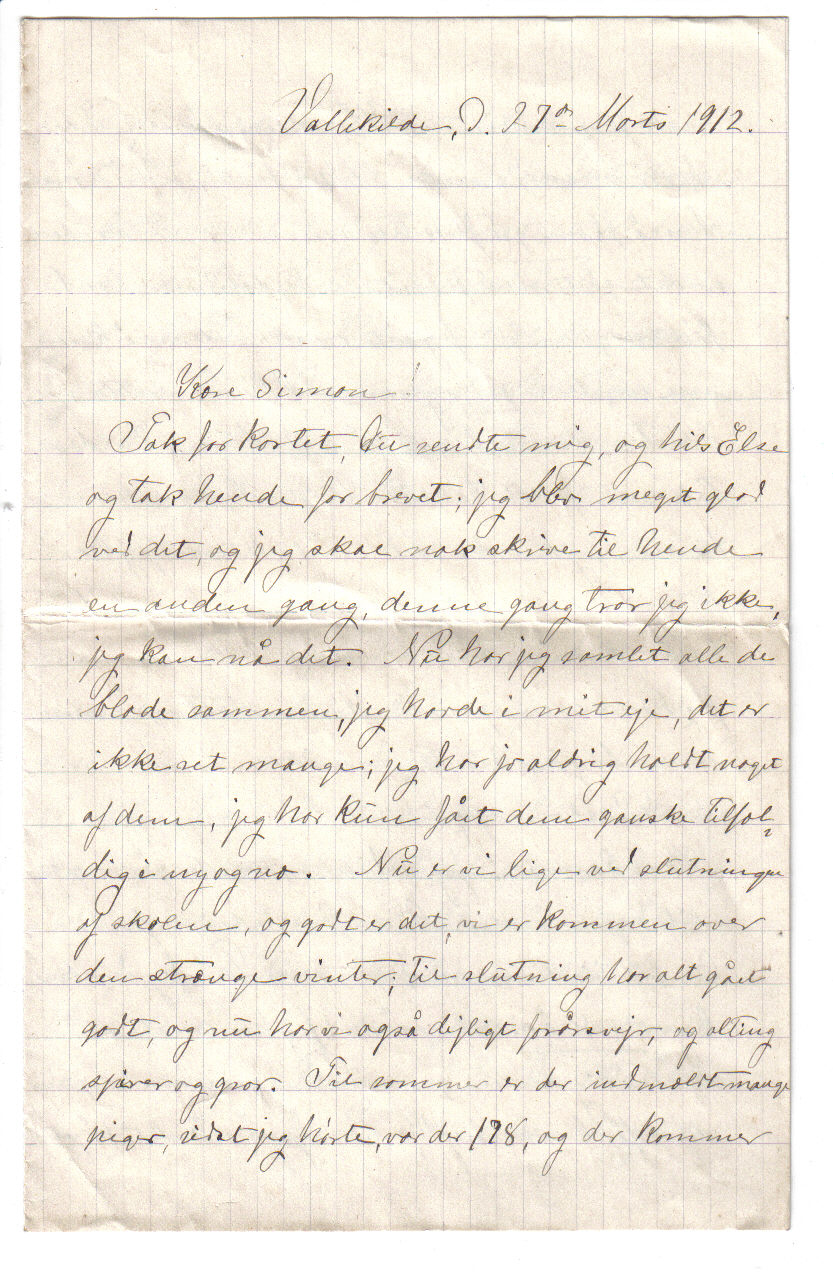 Vallekilde, D. 27de Marts 1912.
Kære Simon!
Tak for kortet, Du sendte mig, og hils Else
og tak hende for brevet; jeg blev meget glad
ved det, og jeg skal nok skrive til hende
en anden gang, denne gang tror jeg ikke,
jeg kan nå det. Nu har jeg samlet alle de
blade sammen, jeg havde i mit eje, det er
ikke ret mange; jeg har jo aldrig holdt noget
af dem, jeg har kun fået dem ganske tilfæl-
dig i ny og næ. Nu er vi lige ved slutningen
af skolen, og godt er det, vi er kommen over
den strænge vinter; til slutning har alt gået
godt, og nu har vi også dejligt forårsvejr, og alting
spirer og gror. Til sommer er der indmældt mange
piger, sidst jeg hørte, var der 178, og der kommer